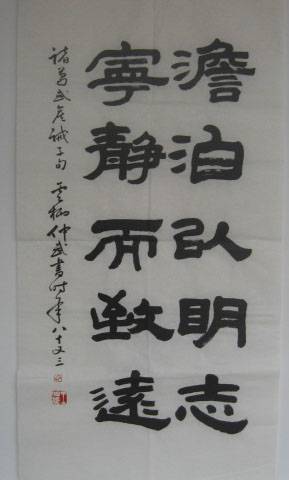 澹泊以明志
寧靜而致遠
諸葛武侯誡子句 仲武書時年八十又三